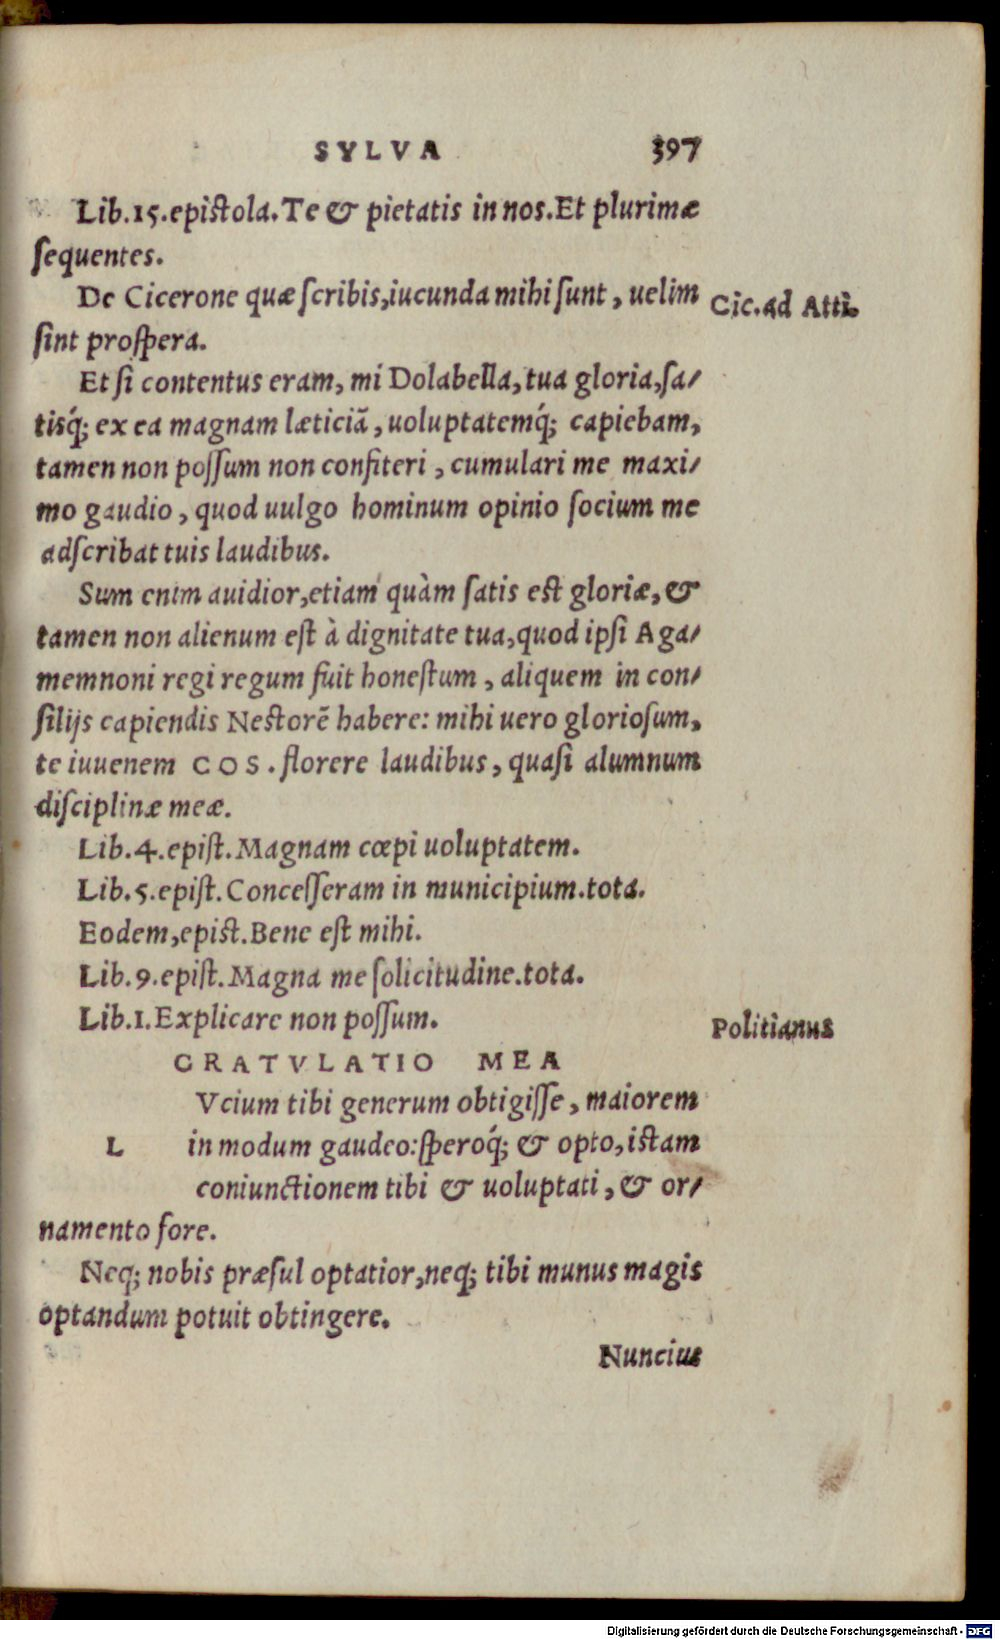 SYLVA 397
Lib.15.epistola.Te & pietatis in nos.Et plurimæ
ſequentes.
De Cicerone quæ ſcribis,iucunda mihi ſunt, uelim
Cic.ad Atti.
ſint proſpera.
Et ſi contentus eram, mi Dolabella, tua gloria,ſa/
tisq́; ex ea magnam læticiã, uoluptatemq́; capiebam,
tamen non poſſum non confiteri, cumulari me maxi/
mo gaudio, quod uulgo hominum opinio ſocium me
adſcribat tuis laudibus.
Sum enim auidior,etiam quàm ſatis eſt gloriæ, &
tamen non alienum eſt à dignitate tua,quod ipſi Aga/
memnoni regi regum fuit honeſtum, aliquem in con/
ſilijs capiendis Neſtorẽ habere: mihi uero glorioſum,
te iuuenem COS. florere laudibus, quaſi alumnum
diſciplinæ meæ.
Lib.4.epiſt.Magnam cœpi uoluptatem.
Lib.5.epiſt.Conceſſeram in municipium.tota.
Eodem,epiſt.Bene eſt mihi.
Lib.9.epiſt.Magna me ſolicitudine.tota.
Lib.1.Explicare non poſſum.
Politianus
GRATVLATIO MEA
Vcium tibi generum obtigiſſe, maiorem
L in modum gaudeo:ſperoq́; & opto,iſtam
coniunctionem tibi & uoluptati, & or/
namento fore.
Neq; nobis præſul optatior,neq; tibi munus magis
optandum potuit obtingere.
Nuncius
Digitalisierung gefördert durch die Deutsche Forschungsgemeinschaft - DFG